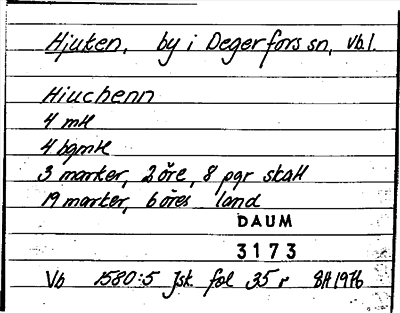 Hjuken, by i Degerfors sn, Vb l.
Hiuchenn
4 mtl
4 bgmtl
3 marker, 2 öre, 8 pgr skatt
19 marker, 6 öres land
DAUM
3173
Vb 1580:5 Jsk fol 35 r